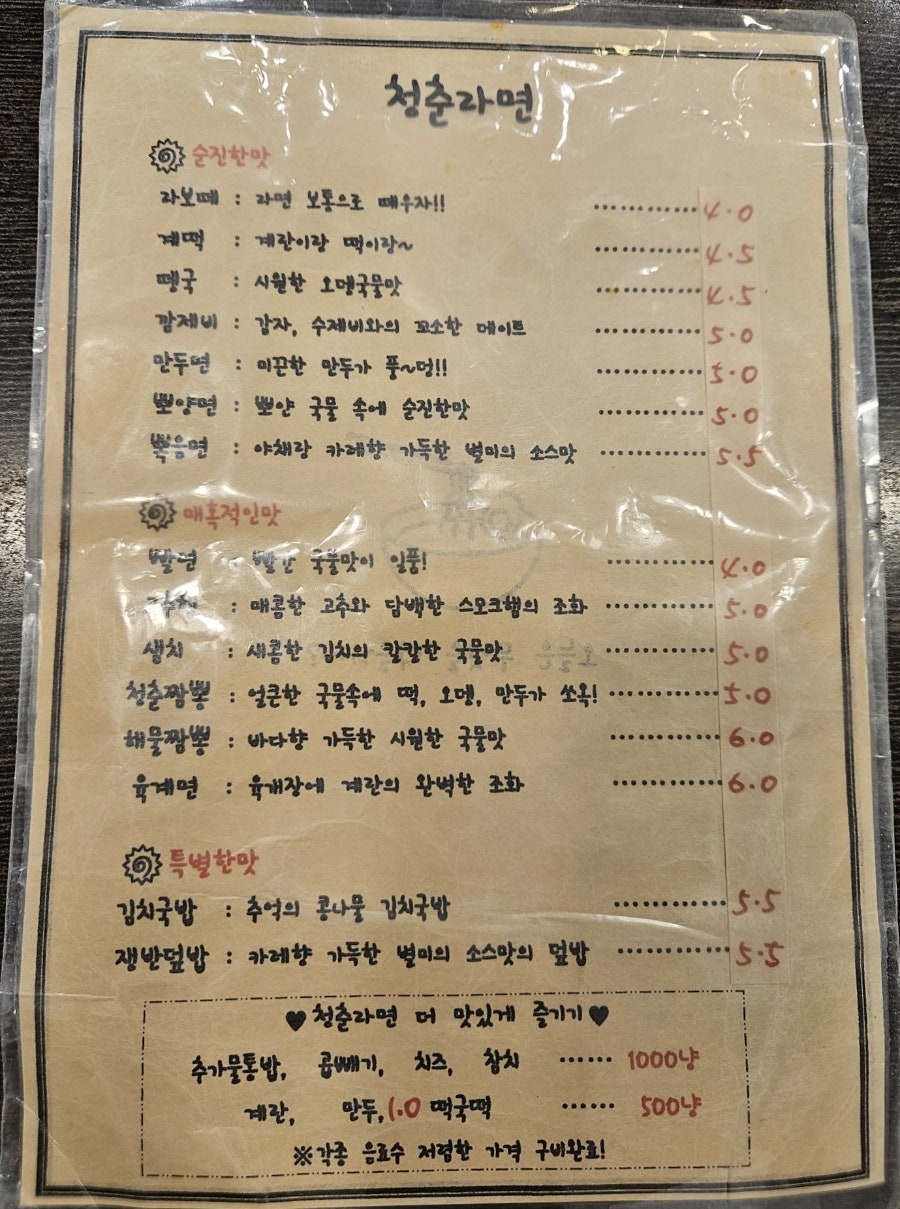 청춘라면
순진한맛
라보때 : 라면 보통으로 때우자!! ············ 4.0
계떡 : 계란이랑 떡이랑~ ············ 4.5
뗑국 : 시원한 오뎅국물맛 ············ 4.5
깜제비 : 감자, 수제비와의 꼬소한 메이트 ············ 5.0
만두면 : 미끈한 만두가 풍~덩!! ············ 5.0
뽀양면 : 뽀얀 국물 속에 순진한맛 ············ 5.0
볶음면 : 야채랑 카레향 가득한 별미의 소스맛 ············ 5.5
매혹적인맛
빨면 : 빨간 국물맛이 일품! ············ 4.0
: 매콤한 고추와 담백한 스모크햄의 조화 ············ 5.0
생치 : 새콤한 김치의 칼칼한 국물맛 ············ 5.0
청춘짬뽕 : 얼큰한 국물속에 떡, 오뎅, 만두가 쏘옥! ············ 5.0
해물짬뽕 : 바다향 가득한 시원한 국물맛 ············ 6.0
육계면 : 육개장에 계란의 완벽한 조화 ············ 6.0
특별한맛
김치국밥 : 추억의 콩나물 김치국밥 ············ 5.5
쟁반덮밥 : 카레향 가득한 별미의 소스맛의 덮밥 ············ 5.5
♥청춘라면 더 맛있게 즐기기♥
추가물통밥, 곱빼기, 치즈, 참치 ······ 1000냥
계란, 만두,1.0 떡국떡 ······ 500냥
※각종 음료수 저렴한 가격 구비완료!